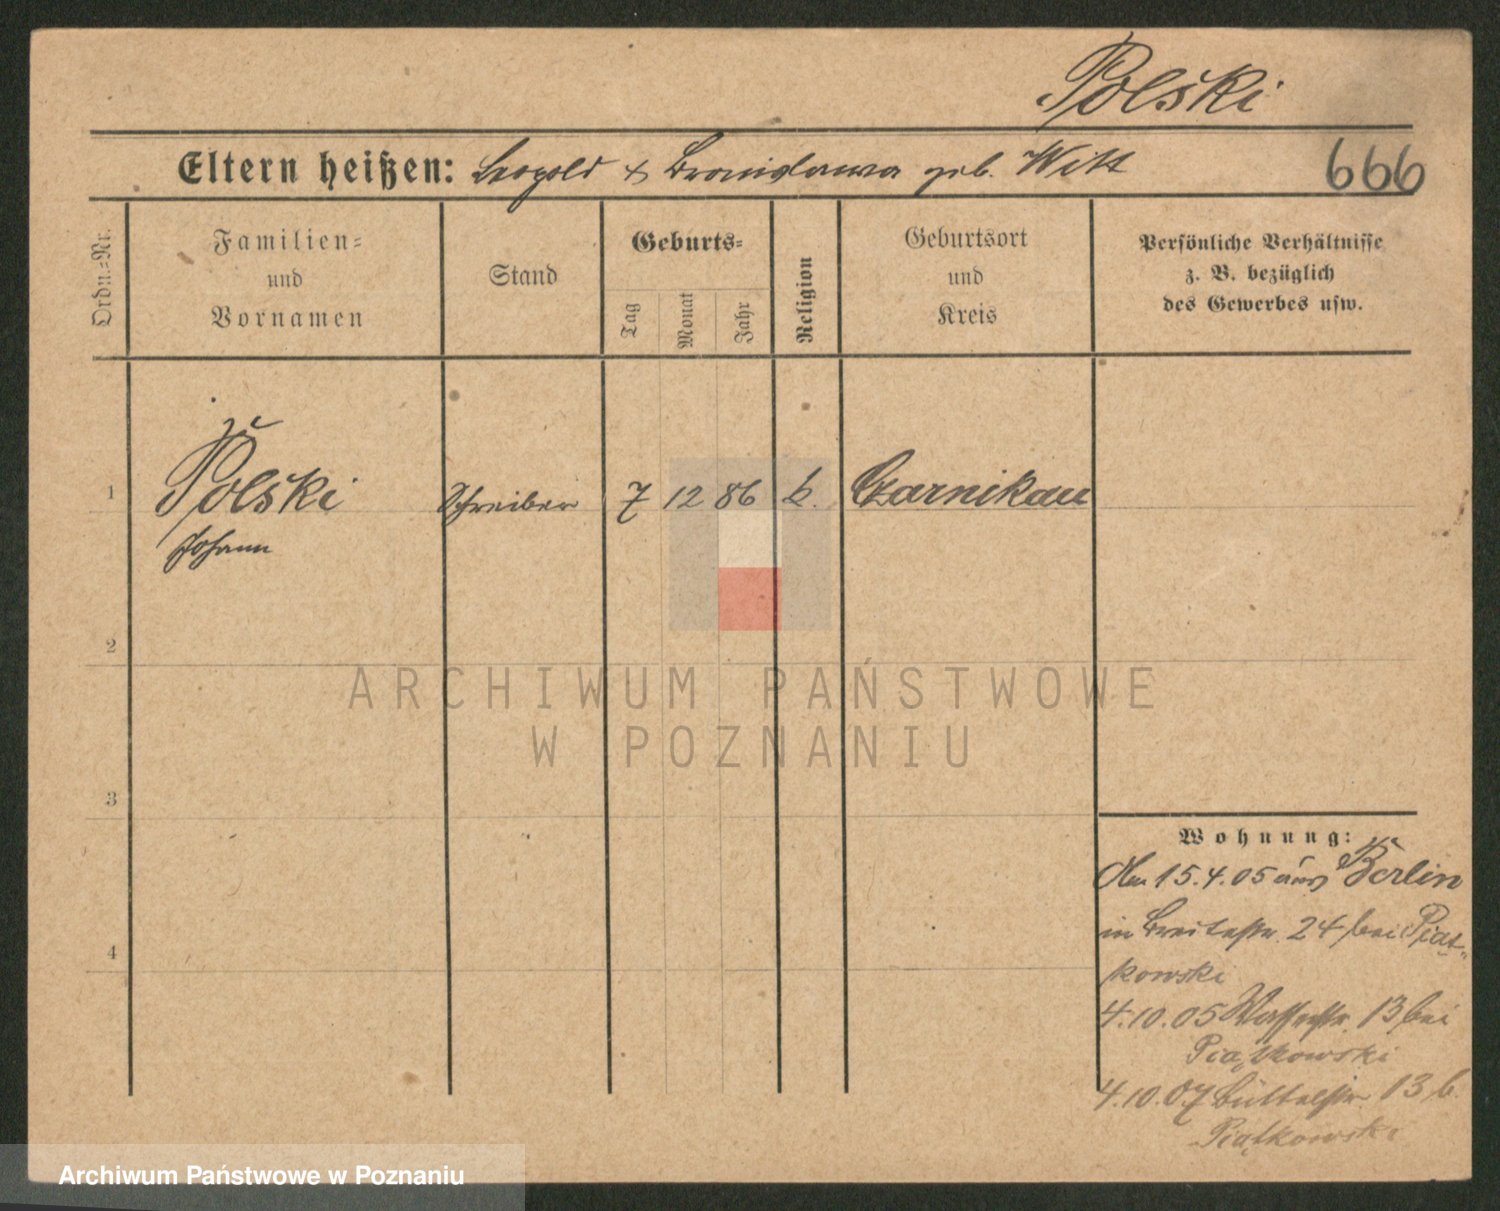 Polski
Eltern heißen: Leopold & Bronislawa geb. Witt
666
Ordn.=Nr.
Familien=
und
Vornamen
Stand
Geburts=
Tag
Monat
Jahr
Religion
Geburtsort
und
Kreis
Persönliche Verhältnisse
z. B. bezüglich
des Gewerbes usw.
1
Polski
Johann
Schreiber
7
12
86
k.
Czarnikau
2
3
4
Wohnung:
Am 15.4.05 aus Berlin
in Breitestr. 24 bei Piąt-
kowski
4.10.05 Wasserstr. 13 bei
Piątkowski
4.10.07 Büttelstr. 13 b.
Piątkowski
ARCHIWUM PAŃSTWOWE
W POZNANIU
Archiwum Państwowe w Poznaniu